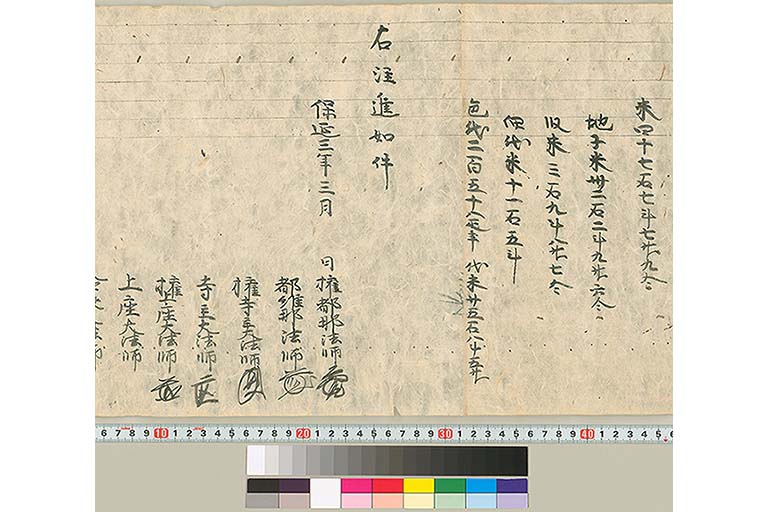 米四十七石七斗七升九合
地子米卅二石二斗九升六合
旧米三石九斗八升七合
代米十一石五斗
色代二百五十八 代米廿五石八斗五升
右注進如件
保延三年三月 日権都那法師
都維那法師
権寺主大法師
寺主大法師
権上座大法師
上座大法師